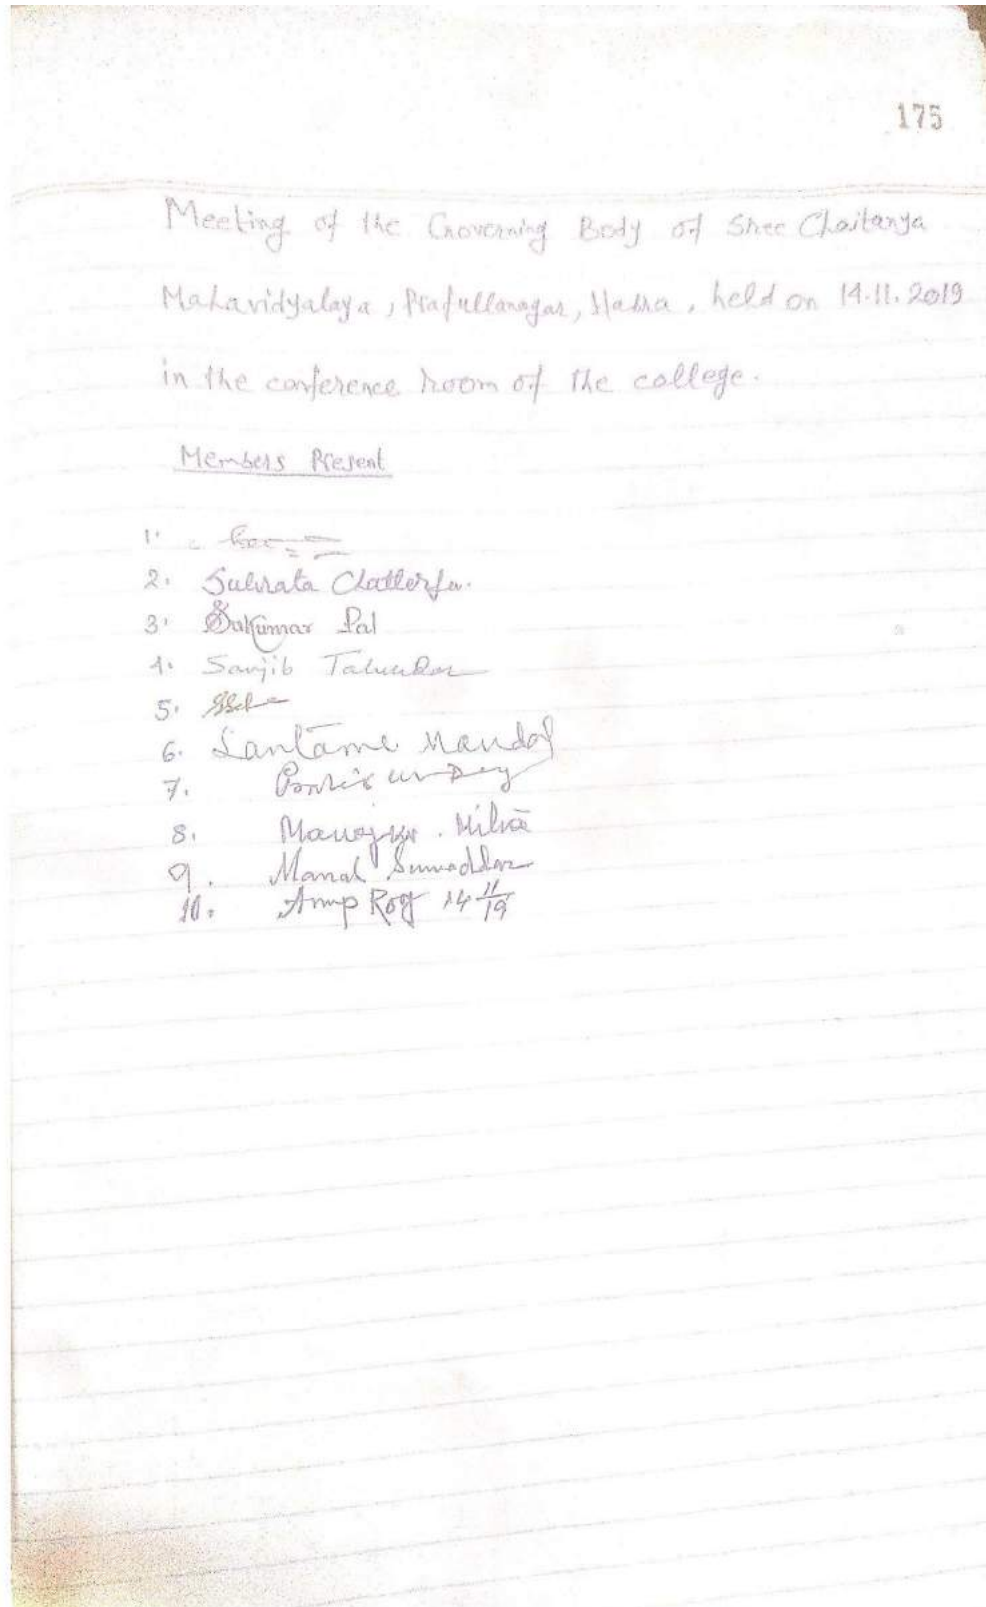 175
Meeting of the Governing Body of Shree Chaitanya
Mahavidyalaya, Prafullanagar, Habra, held on 14.11.2019
in the conference room of the college.
Members Present
1.
2. Subrata Chatterjee.
3. Sukumar Pal
4. Sanjib Talukdar
5.
6. Mandal
7. Dey
8. Mitra
9. Samaddar
10. Anup Roy 14/11/19